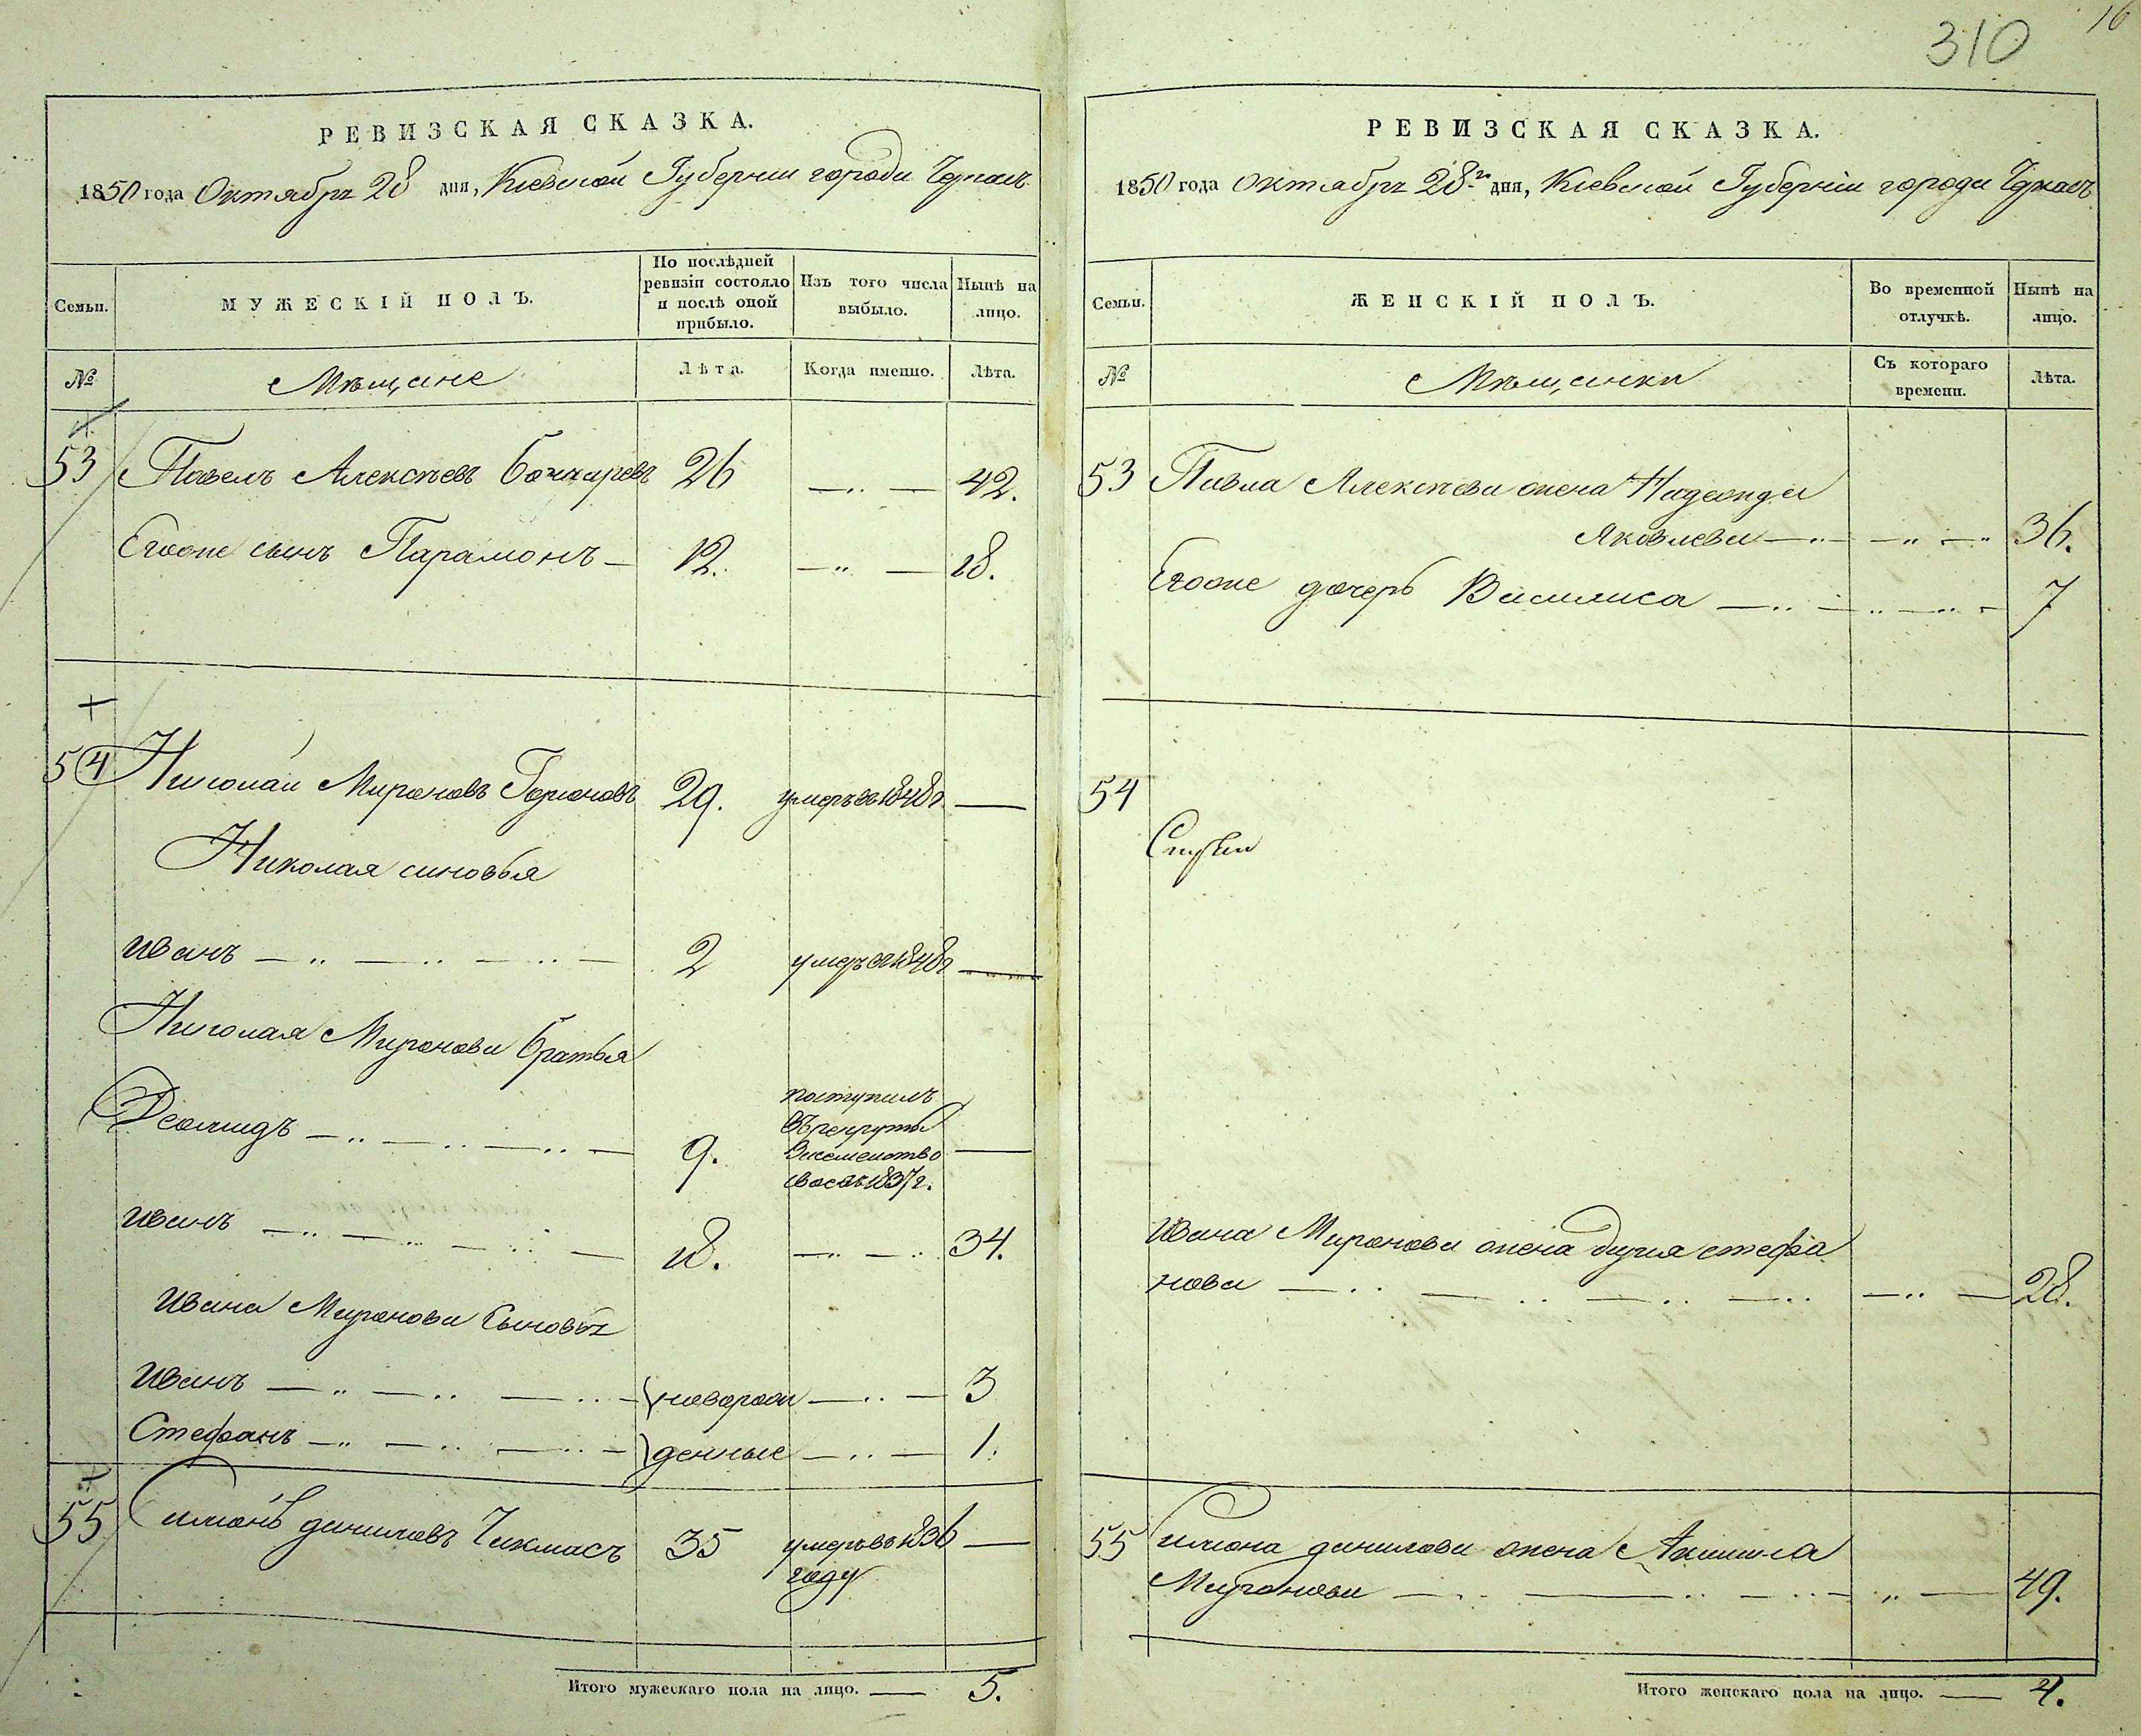 310
16
РЕВИЗСКАЯ СКАЗКА.
1850 года Октября 28 дня, Кіевской Губерніи города Черкасъ
Семьи.
МУЖЕСКІЙ ПОЛЪ.
По послѣдней ревизіи состояло и послѣ оной прибыло.
Изъ того числа выбыло.
Нынѣ на лицо.
№
Мѣщане
Лѣта.
Когда именно.
Лѣта.
53 Павелъ Алексѣевъ Бочкаревъ 26 42.
Егоже сынъ Парамонъ 12. 28.
54 Николай Мироновъ Горюновъ 29. умеръ въ 1848 г.
Николая синовья
Иванъ 2 умеръ въ 1848 г
Николая Миронова братья
Деомидъ 9. поступилъ
въ рекруты
Засемейство
свое въ 1837 г.
Иванъ 18. 34.
Ивана Миронова Сыновья
Иванъ новорож 3
Стефанъ денные 1.
55 Симонъ Даниловъ Чикмасъ 35 умеръ въ 1836
году
Итого мужескаго пола на лицо. 5.
РЕВИЗСКАЯ СКАЗКА.
1850 года Октября 28 го дня, Кіевской Губерніи города Черкасъ
Семьи.
ЖЕНСКІЙ ПОЛЪ.
Во временной отлучкѣ.
Нынѣ на лицо.
№
Мѣщанки
Съ котораго времени.
Лѣта.
53 Павла Алексѣева жена Надежда
Яковлева 36.
Егоже дочерь Василиса 7
54
Ивана Миронова жена Стефа
нова 28.
55 Симона Данилова жена Акилина
Миронова 49.
Итого женскаго пола на лицо. 4.